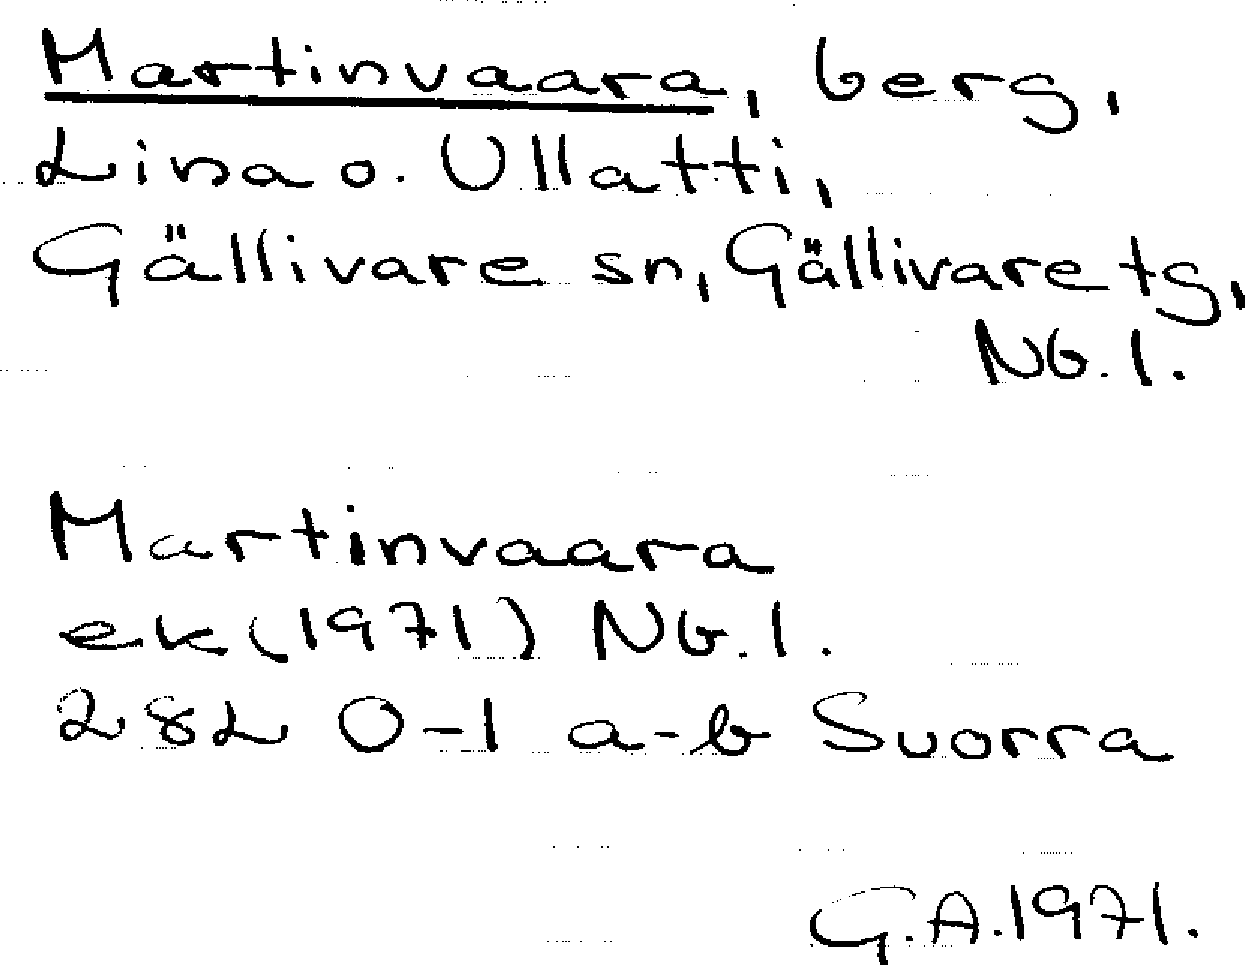 Martinvaara, berg,
Lina o. Ullatti,
Gällivare sn, Gällivare tg,
Nb. l.
Martinvaara
ek (1971) Nb. l.
28L 0-1 a-b Suorra
G.A. 1971.